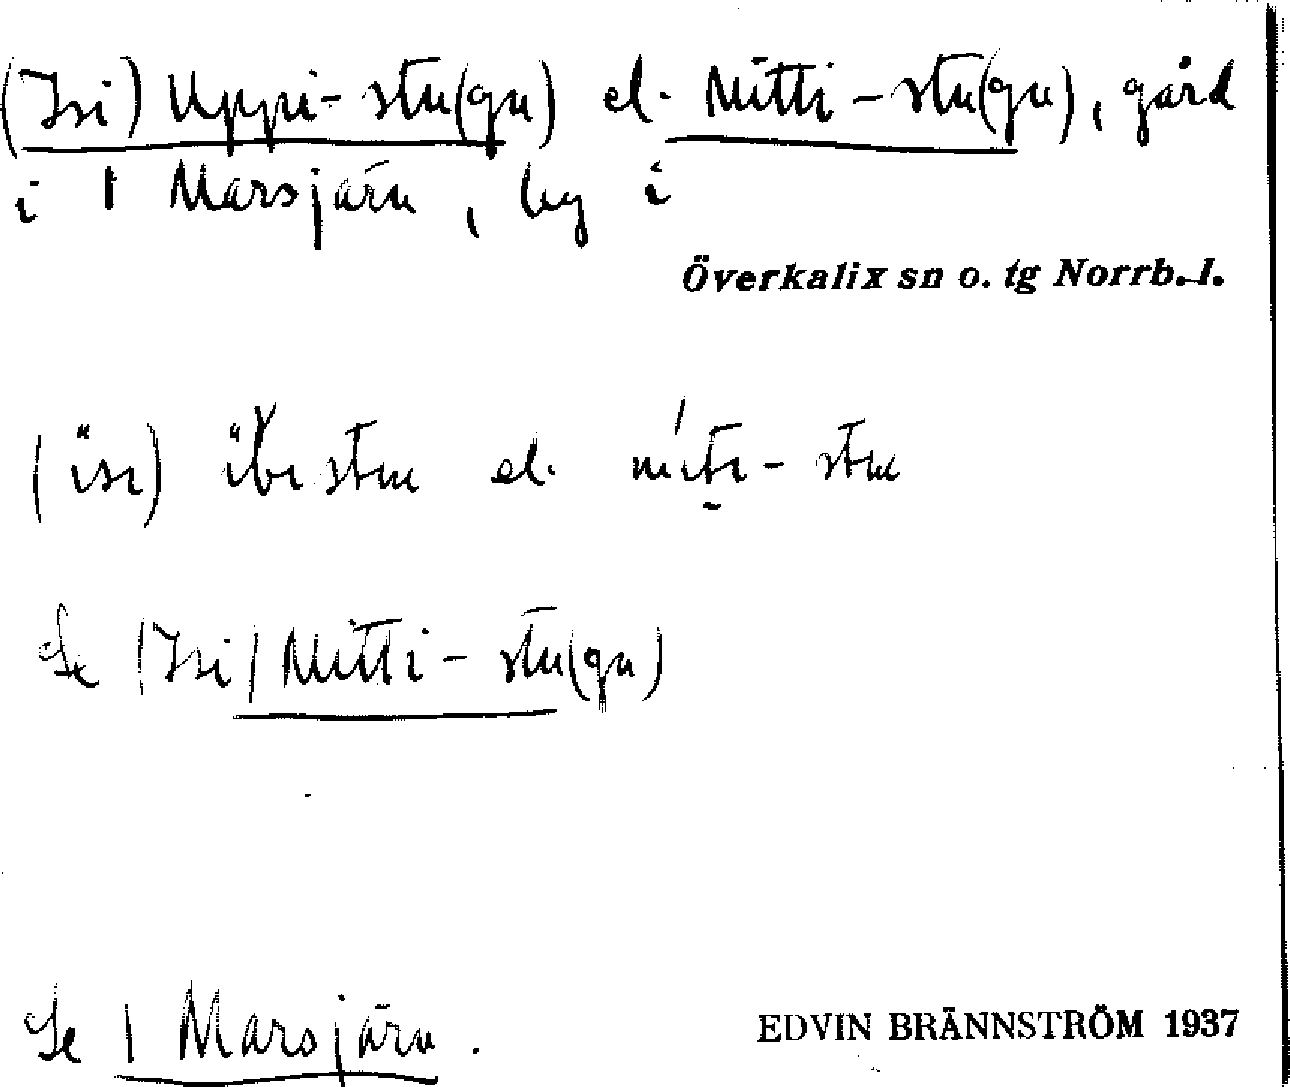 (Isi) Uppi-stu(gu) el. Mitti-stu(gu), gård
i 1 Marsjärn, by i
Överkalix sn o. tg Norrb. l.
el.
Se (Isi) Mitti-stu(gu)
Se 1 Marsjärn.
EDVIN BRÄNNSTRÖM 1937